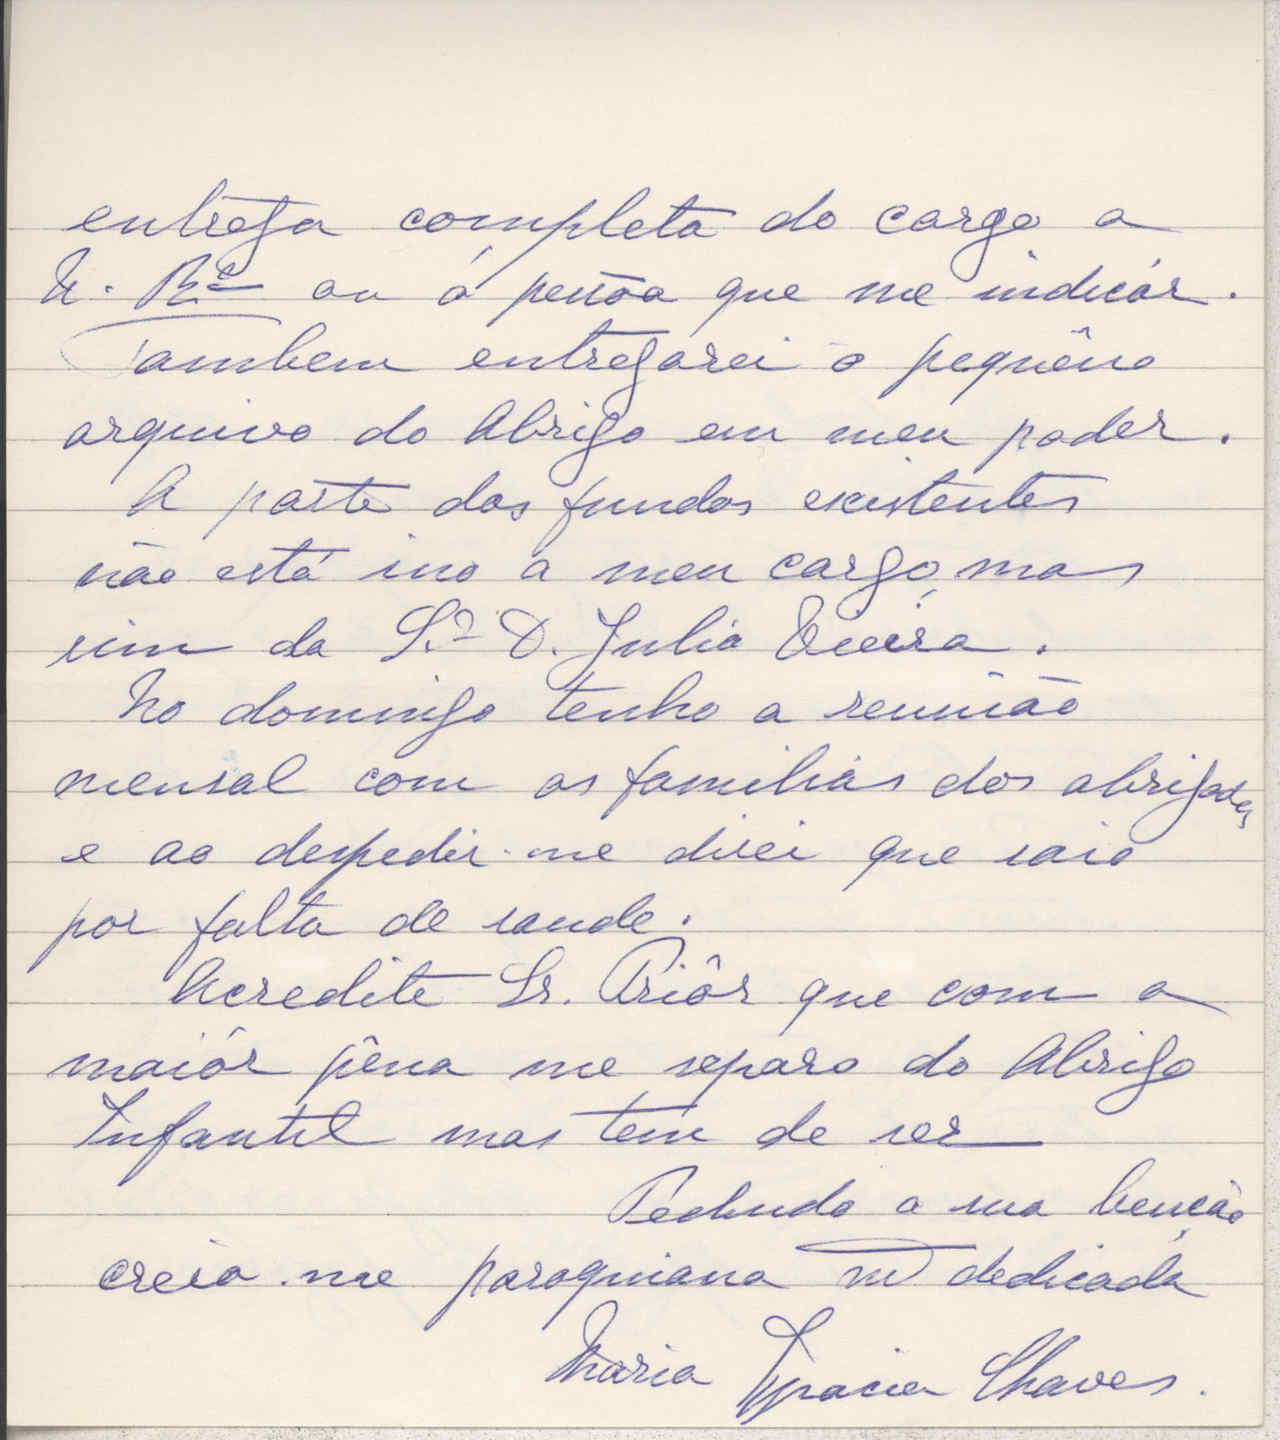 entrega completa do cargo a
V. Rª ou á pessôa que me indicár.
Tambem entregarei o pequêno
arquivo do Abrigo em meu poder.
A parte dos fundos existentes
não está ino a meu cargo, mas
sim da S.ª D. Julia Vieira.
No domingo tenho a reunião
mensal com as familias dos abrigados
e ao despedir-me direi que saio
por falta de saude.
Acredite Sr. Priôr que com a
maiór pêna me separo do Abrigo
Infantil mas tem de ser
Pedindo a sua benção
creia-me paroquiana mt dedicada
Maria Ignacia Chaves.